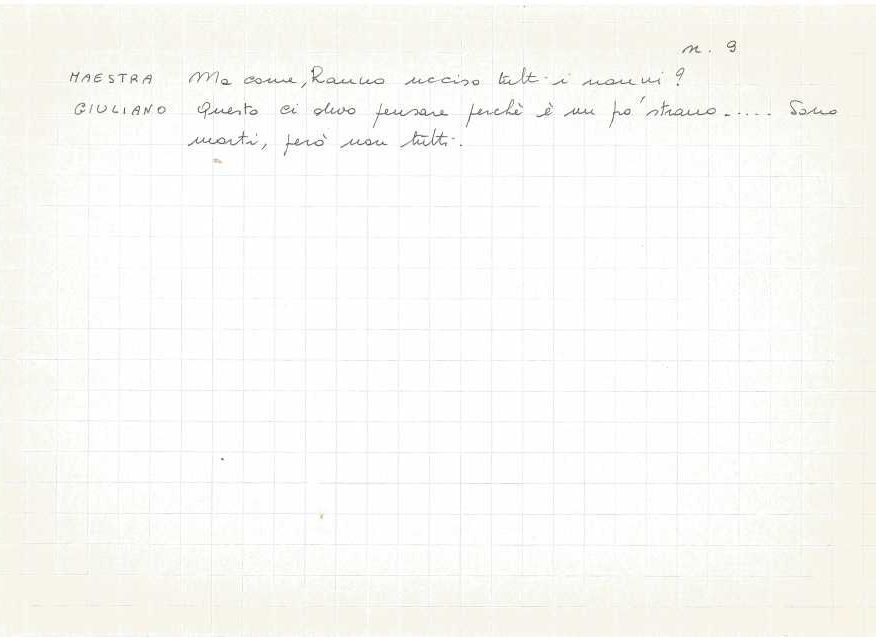 n. 9
MAESTRA Ma come, hanno ucciso tutti i nonni?
GIULIANO Questo ci devo pensare perchè è un po' strano..... Sono
morti, però non tutti.